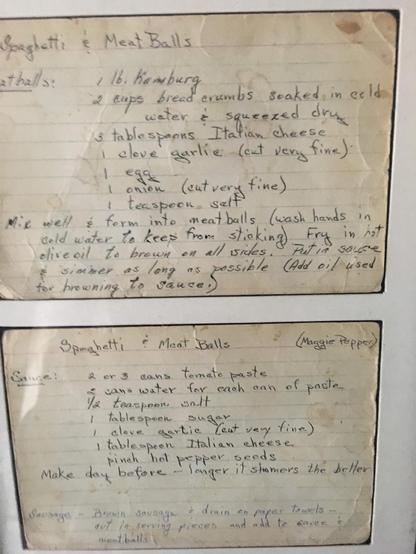 Spaghetti & Meat Balls
atballs: 1 lb. Hamburg
2 cups bread crumbs soaked in cold
water & squeezed dry
3 tablespoons Italian cheese
1 clove garlic (cut very fine)
1 egg
1 onion (cut very fine)
1 teaspoon salt
Mix well & form into meatballs (wash hands in
cold water to keep from sticking) Fry in hot
olive oil to brown on all sides. Put in sauce
& simmer as long as possible (Add oil used
for browning to sauce.)
Spaghetti & Meat Balls (Maggie Pepper)
Sauce: 2 or 3 cans tomato paste
cans water for each can of paste
1/2 teaspoon salt
1 tablespoon sugar
1 clove garlic (cut very fine)
1 tablespoon Italian cheese
pinch hot pepper seeds
Make day before - longer it simmers the better
Sausage - Brown sausage & drain on paper towels -
cut in serving pieces and add to sauce &
meatballs